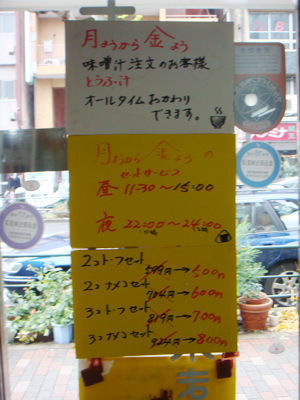 月ようから金よう
味噌汁注文のお客様
とうふ汁
オールタイムおかわり
できます。
月ようから金ようの
セットサービス
昼 11:30〜15:00
夜 22:00〜24:00
2コトーフセット
599円→500円
2コナメコセット
704円→600円
3コトーフセット
819円→700円
3コナメコセット
924円→800円